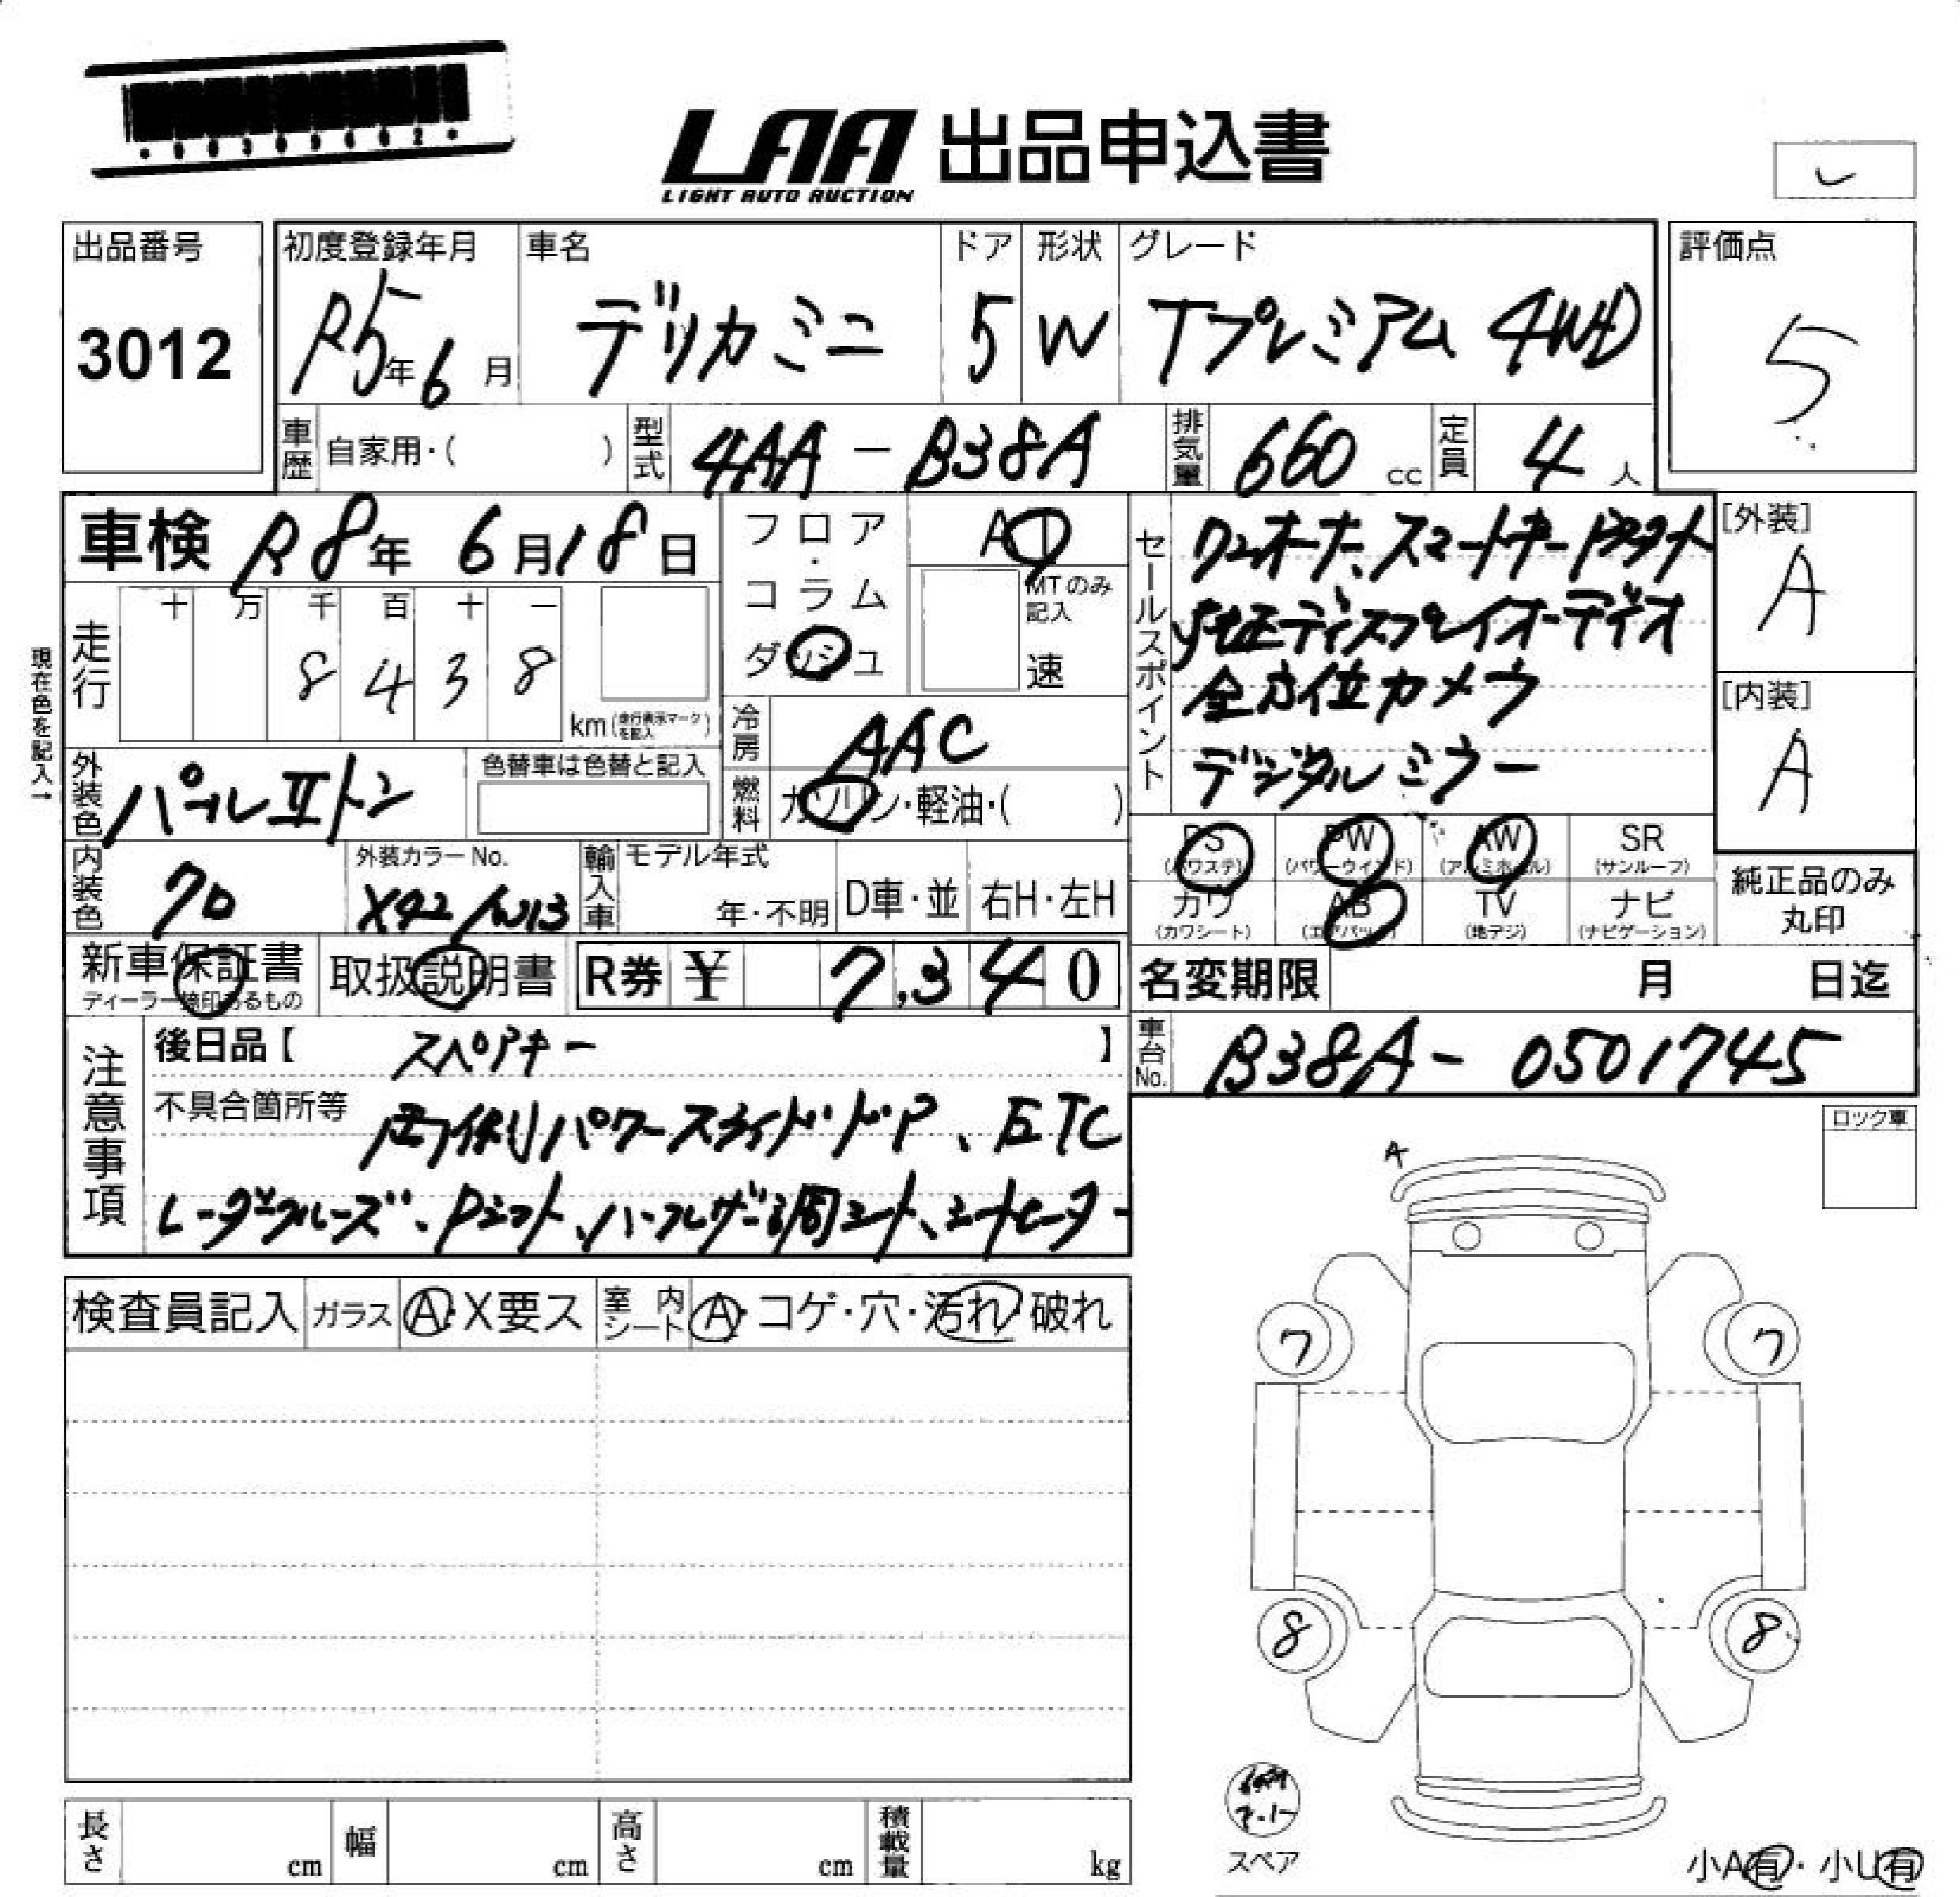 LAA 出品申込書
LIGHT AUTO AUCTION
出品番号
3012
初度登録年月
R5年6月
車名
デリカミニ
ドア
5
形状
W
グレード
Tプレミアム 4WD
評価点
5
車歴 自家用・( )
型式 4AA - B38A
排気量 660 cc
定員 4 人
車検 R8年 6月18日
フロア・コラム
ダッシュ
AT
MTのみ記入
速
セールスポイント
ワンオーナー、スマートキー
純正ディスプレイオーディオ
全方位カメラ
デジタルミラー
[外装]
A
[内装]
A
現在色を記入→
走行
十 万 千 百 十 一
8 4 3 8
km (走行表示マークを記入)
冷房 AAC
燃料 ガソリン・軽油・( )
外装色 パールIIトン
色替車は色替と記入
内装色 クロ
外装カラーNo.
X42/W13
輸入車
モデル年式
年・不明
D車・並
右H・左H
PS (パワステ)
PW (パワーウィンド)
AW (アルミホイル)
SR (サンルーフ)
カワ (カワシート)
AB (エアバック)
TV (地デジ)
ナビ (ナビゲーション)
純正品のみ丸印
新車保証書
ディーラー捺印あるもの
取扱説明書
R券 ¥ 7,340
名変期限 月 日迄
車台No. B38A - 0501745
注意事項
後日品【 スペアキー 】
不具合箇所等
両側パワースライドドア、ETC
レーダークルーズ、Dシフト、ハーフレザー調シート、シートヒーター
ロック車
検査員記入
ガラス A・X要ス
室内シート A・コゲ・穴・汚れ・破れ
A
7 7
8 8
スペア
長さ cm
幅 cm
高さ cm
積載量 kg
小A有・小U有